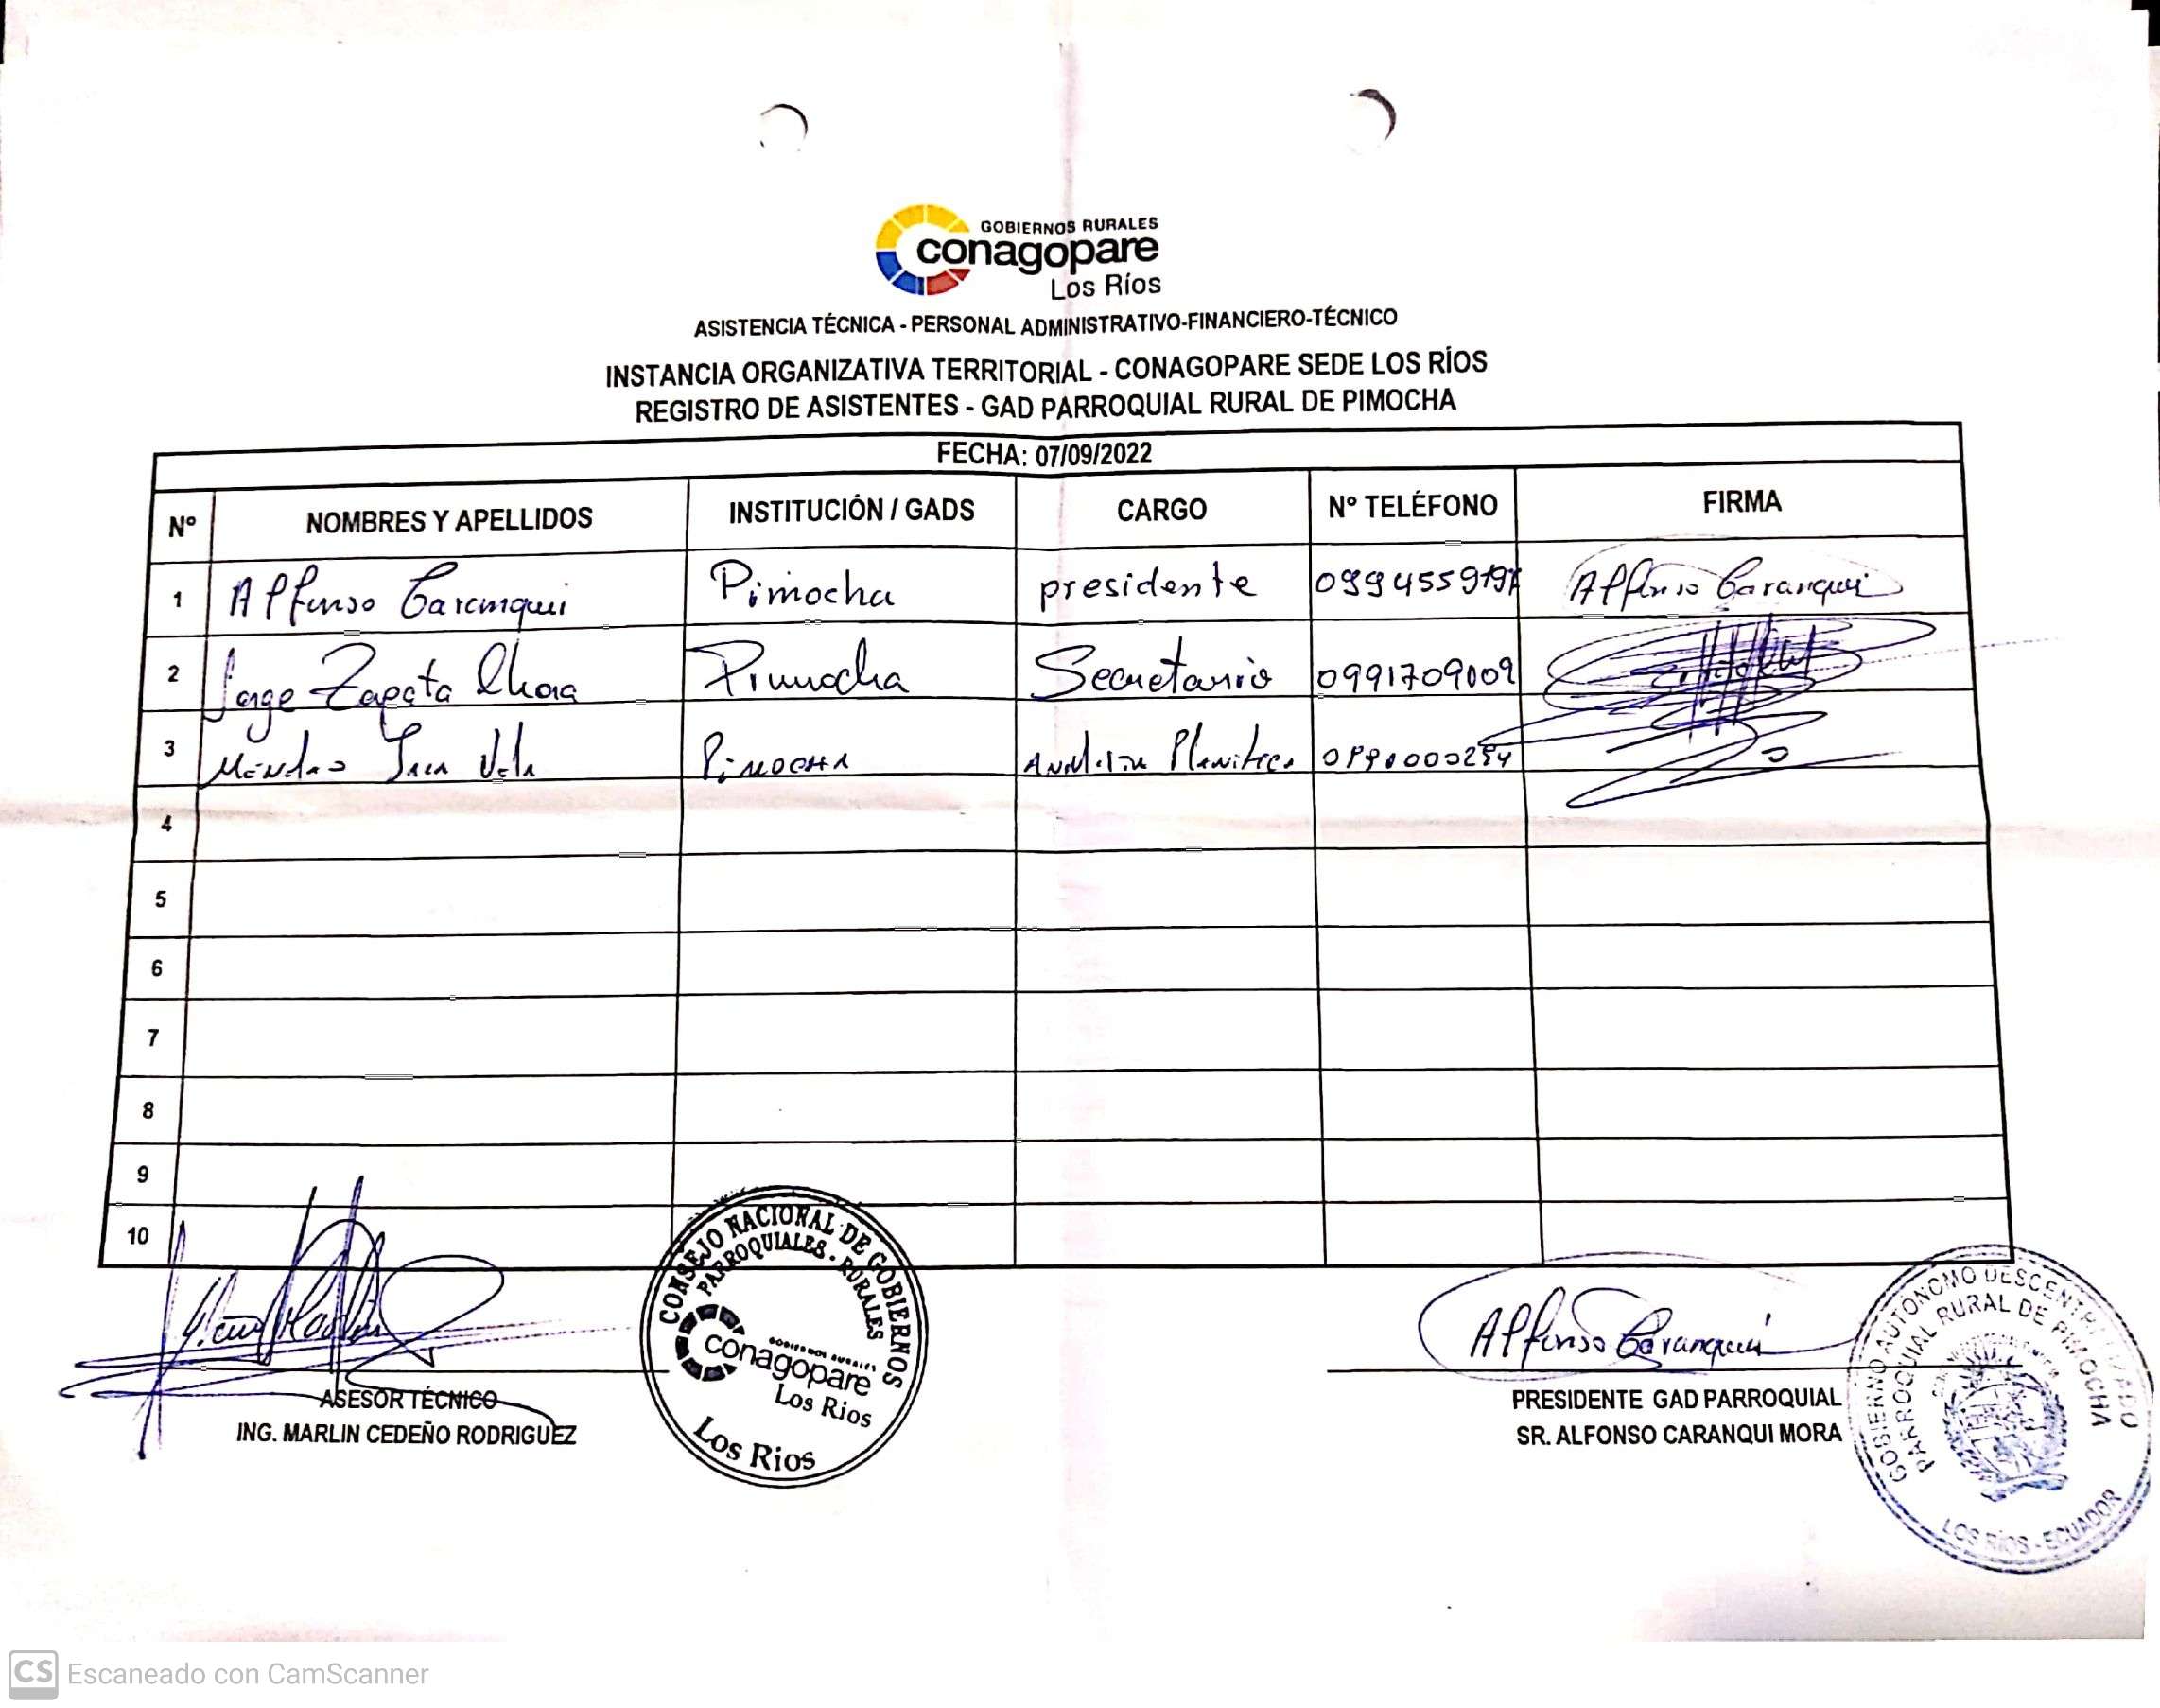 GOBIERNOS RURALES
conagopare
Los Ríos
ASISTENCIA TÉCNICA - PERSONAL ADMINISTRATIVO-FINANCIERO-TÉCNICO
INSTANCIA ORGANIZATIVA TERRITORIAL - CONAGOPARE SEDE LOS RÍOS
REGISTRO DE ASISTENTES - GAD PARROQUIAL RURAL DE PIMOCHA
FECHA: 07/09/2022
Nº NOMBRES Y APELLIDOS INSTITUCIÓN / GADS CARGO Nº TELÉFONO FIRMA
1 Alfonso Caranqui Pimocha presidente Alfonso Caranqui
2 Jorge Zapata Pimocha Secretario 0991709009
3 Pimocha
4
5
6
7
8
9
10
CONSEJO NACIONAL DE GOBIERNOS
PARROQUIALES - RURALES
GOBIERNOS RURALES
conagopare
Los Rios
Los Rios
Alfonso Caranqui
ASESOR TÉCNICO
ING. MARLIN CEDEÑO RODRIGUEZ
PRESIDENTE GAD PARROQUIAL
SR. ALFONSO CARANQUI MORA
GOBIERNO AUTÓNOMO DESCENTRALIZADO
PARROQUIAL RURAL DE PIMOCHA
LOS RÍOS - ECUADOR
CS Escaneado con CamScanner